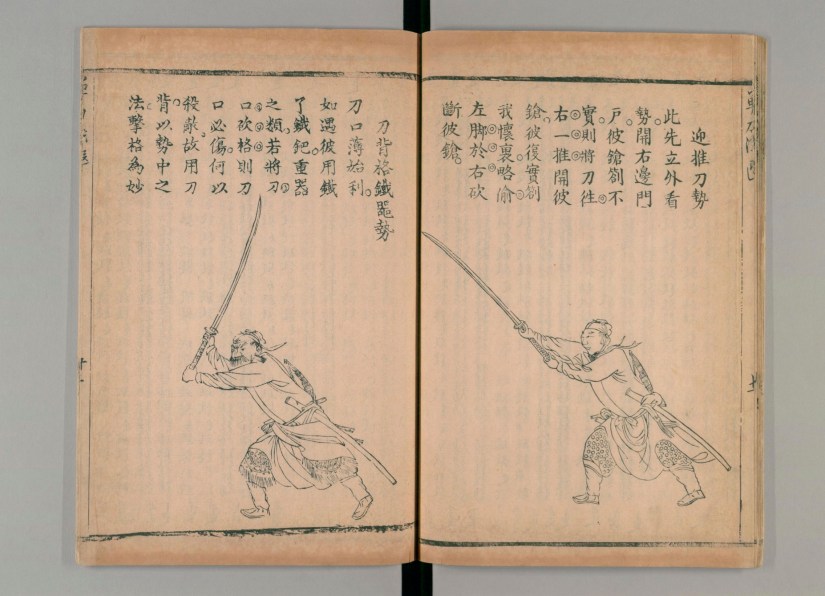 迎推刀勢
此先立外看
勢開右邊門
戶彼鎗劄不
實則將刀徃
右一推開彼
鎗彼復實劄
我懷裏略偷
左脚於右砍
斷彼鎗
刀背格鐵器勢
刀口薄始利
如遇彼用鐵
了鐵鈀重器
之類若將刀
口砍格則刀
口必傷何以
殺敵故用刀
背以勢中之
法擊格為妙